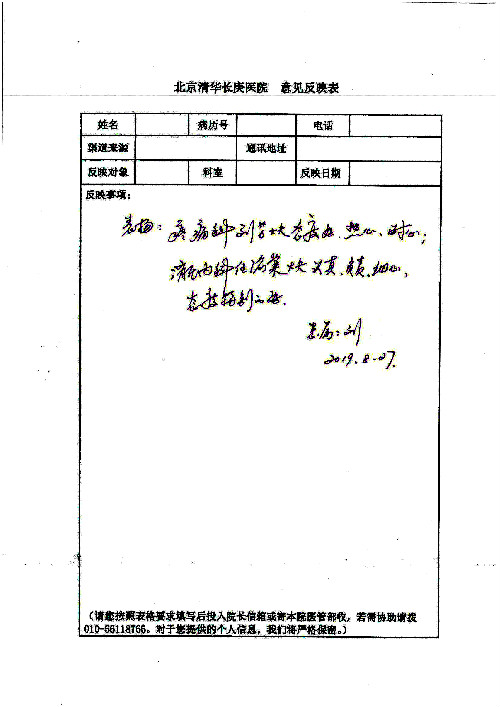 北京清华长庚医院 意见反映表
姓名 病历号 电话
渠道来源 通讯地址
反映对象 科室 反映日期
反映事项:
表扬: 疼痛科刘 大夫态度好、热心、耐心;
消化内科任 大夫 认真、负责、细心,
态度特别好。
患属: 刘
2019.8.27.
(请您按照表格要求填写后投入院长信箱或寄本院医管部收,若需协助请拨
010-56118766。对于您提供的个人信息,我们将严格保密。)